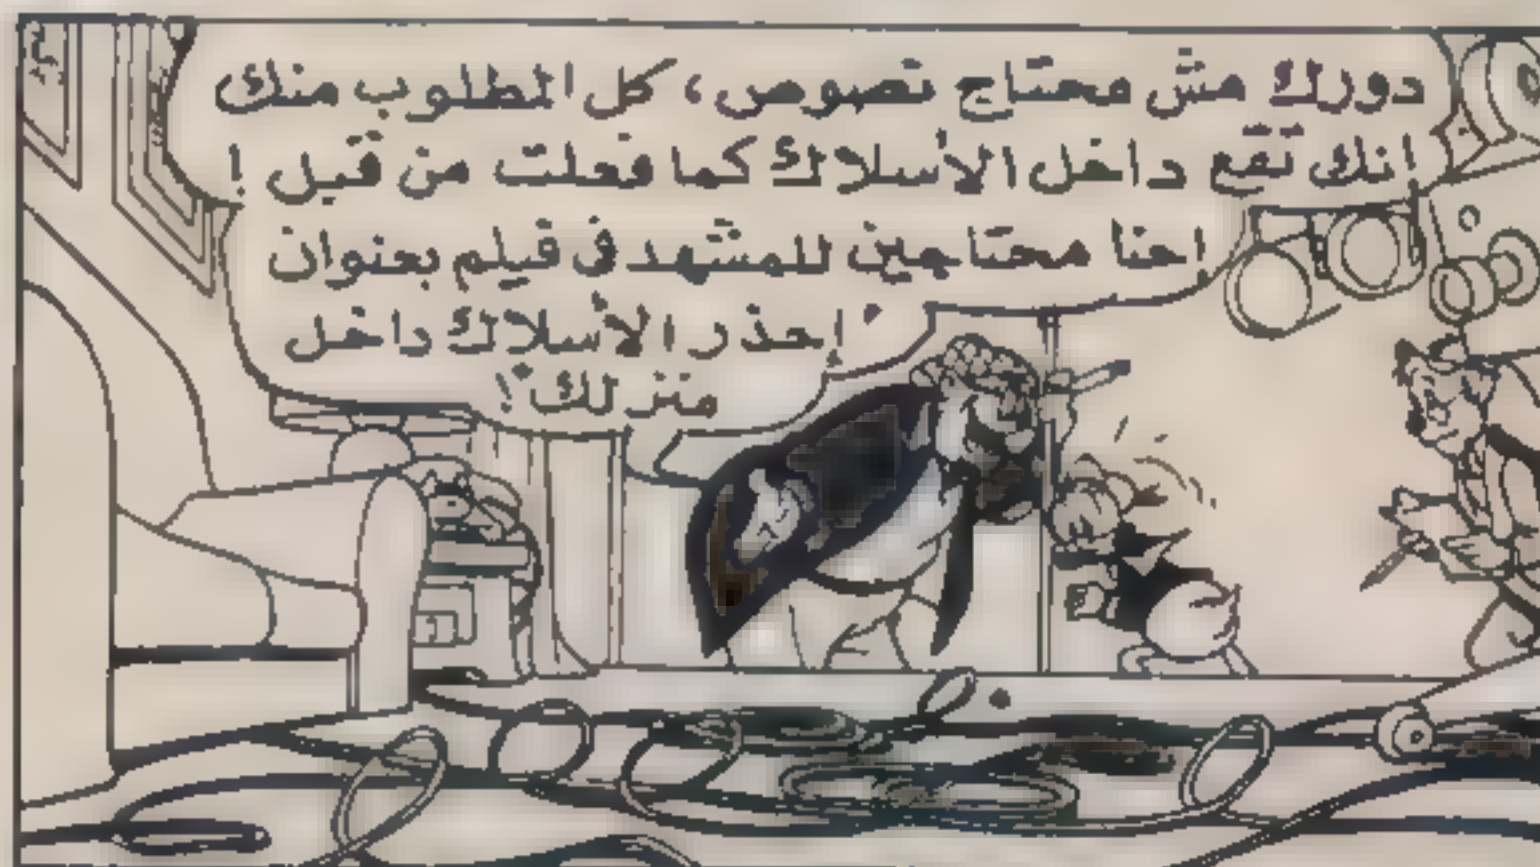 دورك مش محتاج نصوص، كل المطلوب منك
انك تقع داخل الأسلاك كما فعلت من قبل !
احنا محتاجين للمشهد فى فيلم بعنوان
' إحذر الأسلاك داخل
منزلك '!